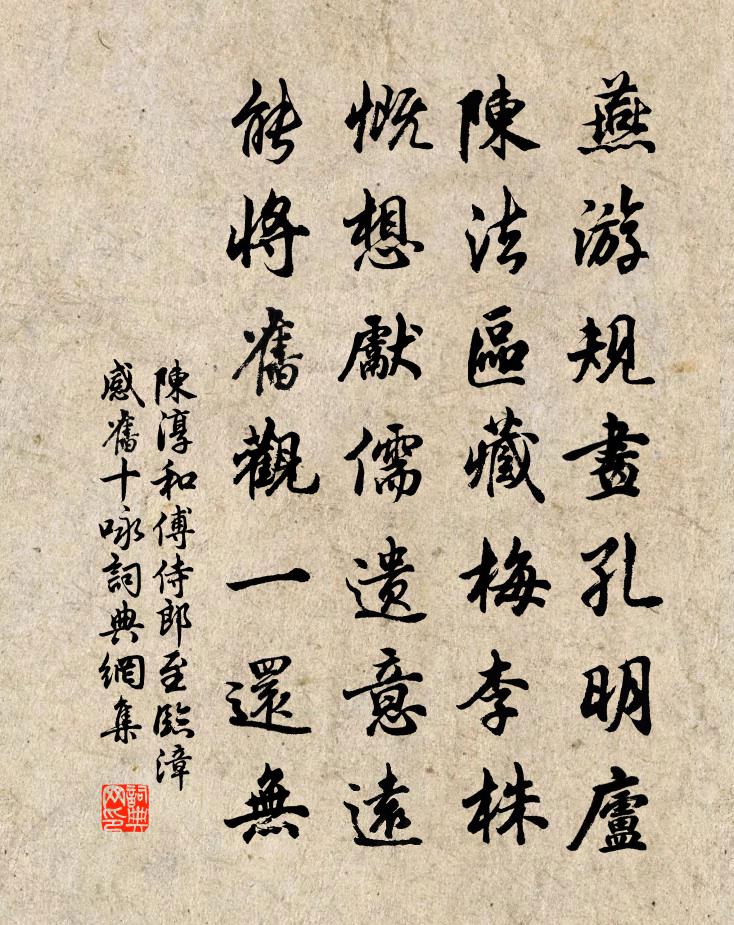 燕游規畫孔明廬
陳法區藏梅李株
慨想獻儒遺意遠
能將舊觀一還無
陳淳和傅侍郎至臨漳
感舊十咏詞典網集
詞典网印